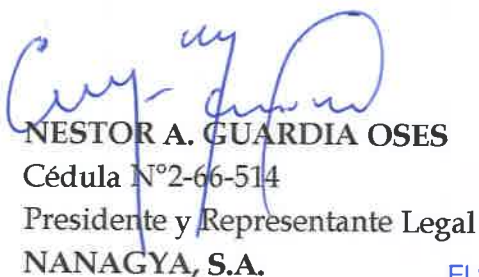 NESTOR A. GUARDIA OSES
Cédula N°2-66-514
Presidente y Representante Legal
NANAGYA, S.A.